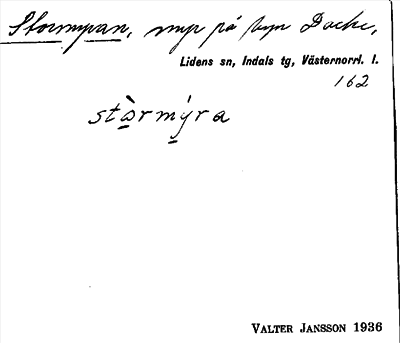 Stormyran, myr på byn Backe,
Lidens sn, Indals tg, Västernorrl. l.
162
stò̱rmý̱ra
VALTER JANSSON 1936